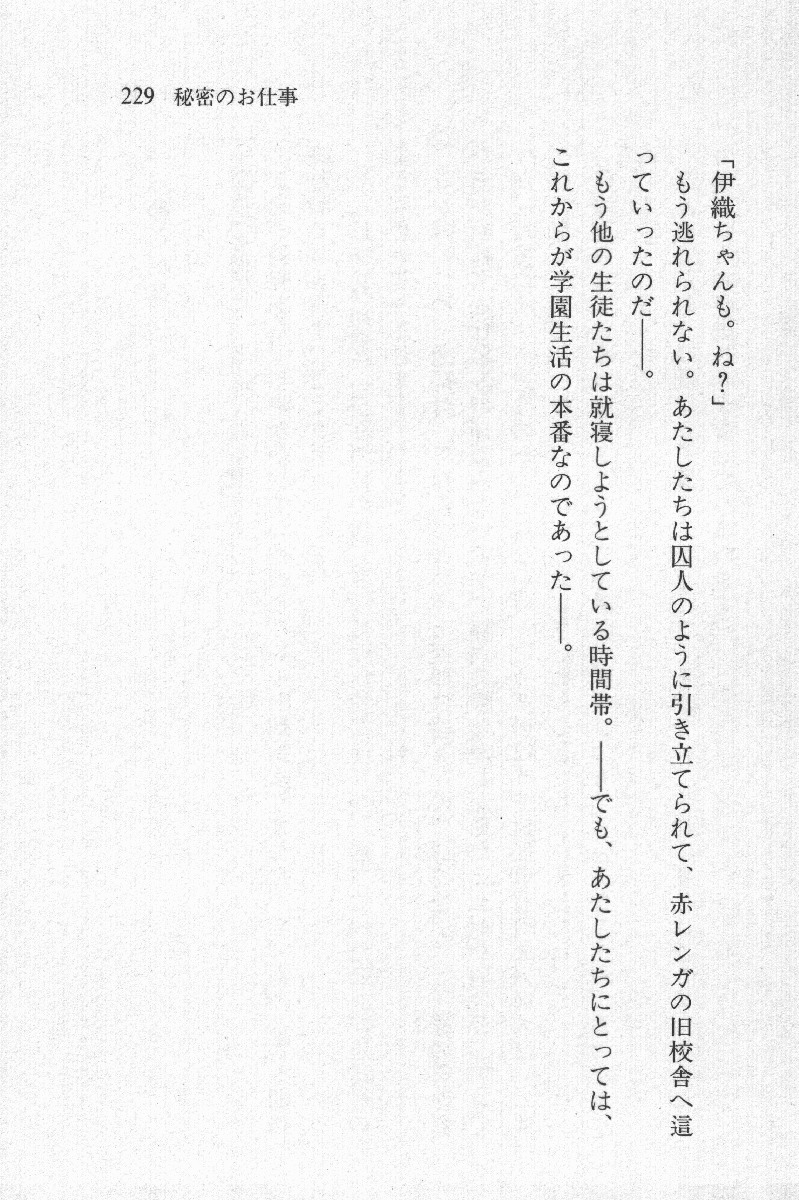 229 秘密のお仕事
「伊織ちゃんも。ね？」
もう逃れられない。あたしたちは囚人のように引き立てられて、赤レンガの旧校舎へ這
っていったのだ――。
もう他の生徒たちは就寝しようとしている時間帯。――でも、あたしたちにとっては、
これからが学園生活の本番なのであった――。